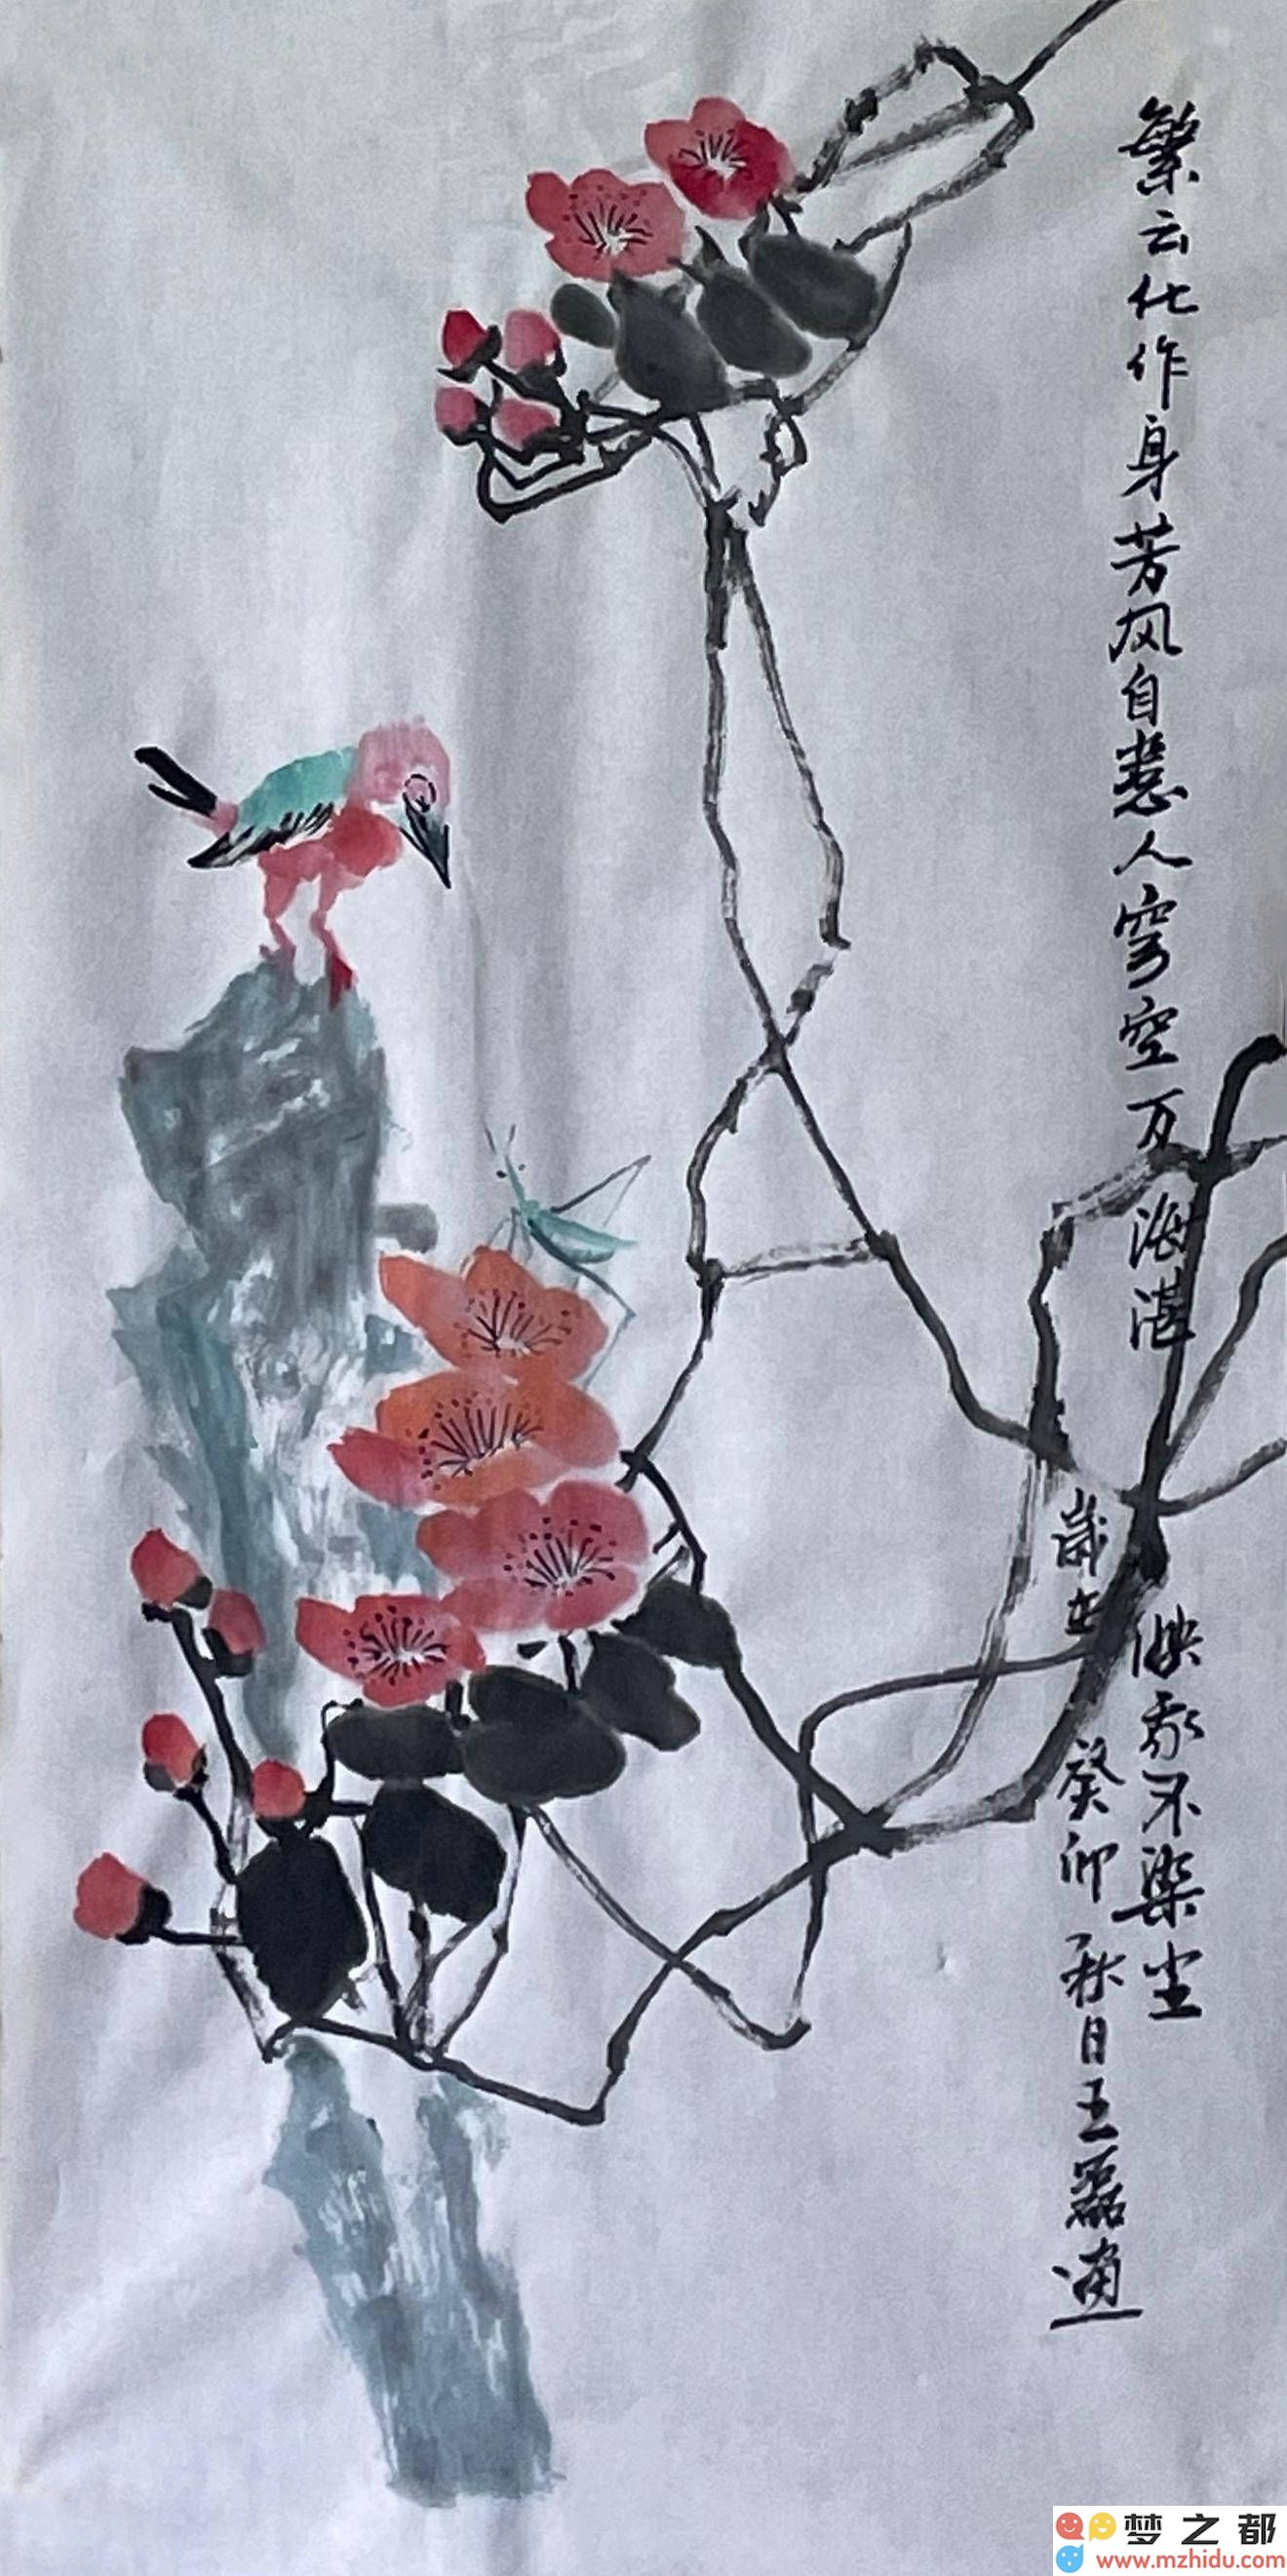 繁云化作身芳风自惹人穹空万海湛
映家不染尘
岁在
癸卯秋日王磊通
梦之都
www.mzhidu.com